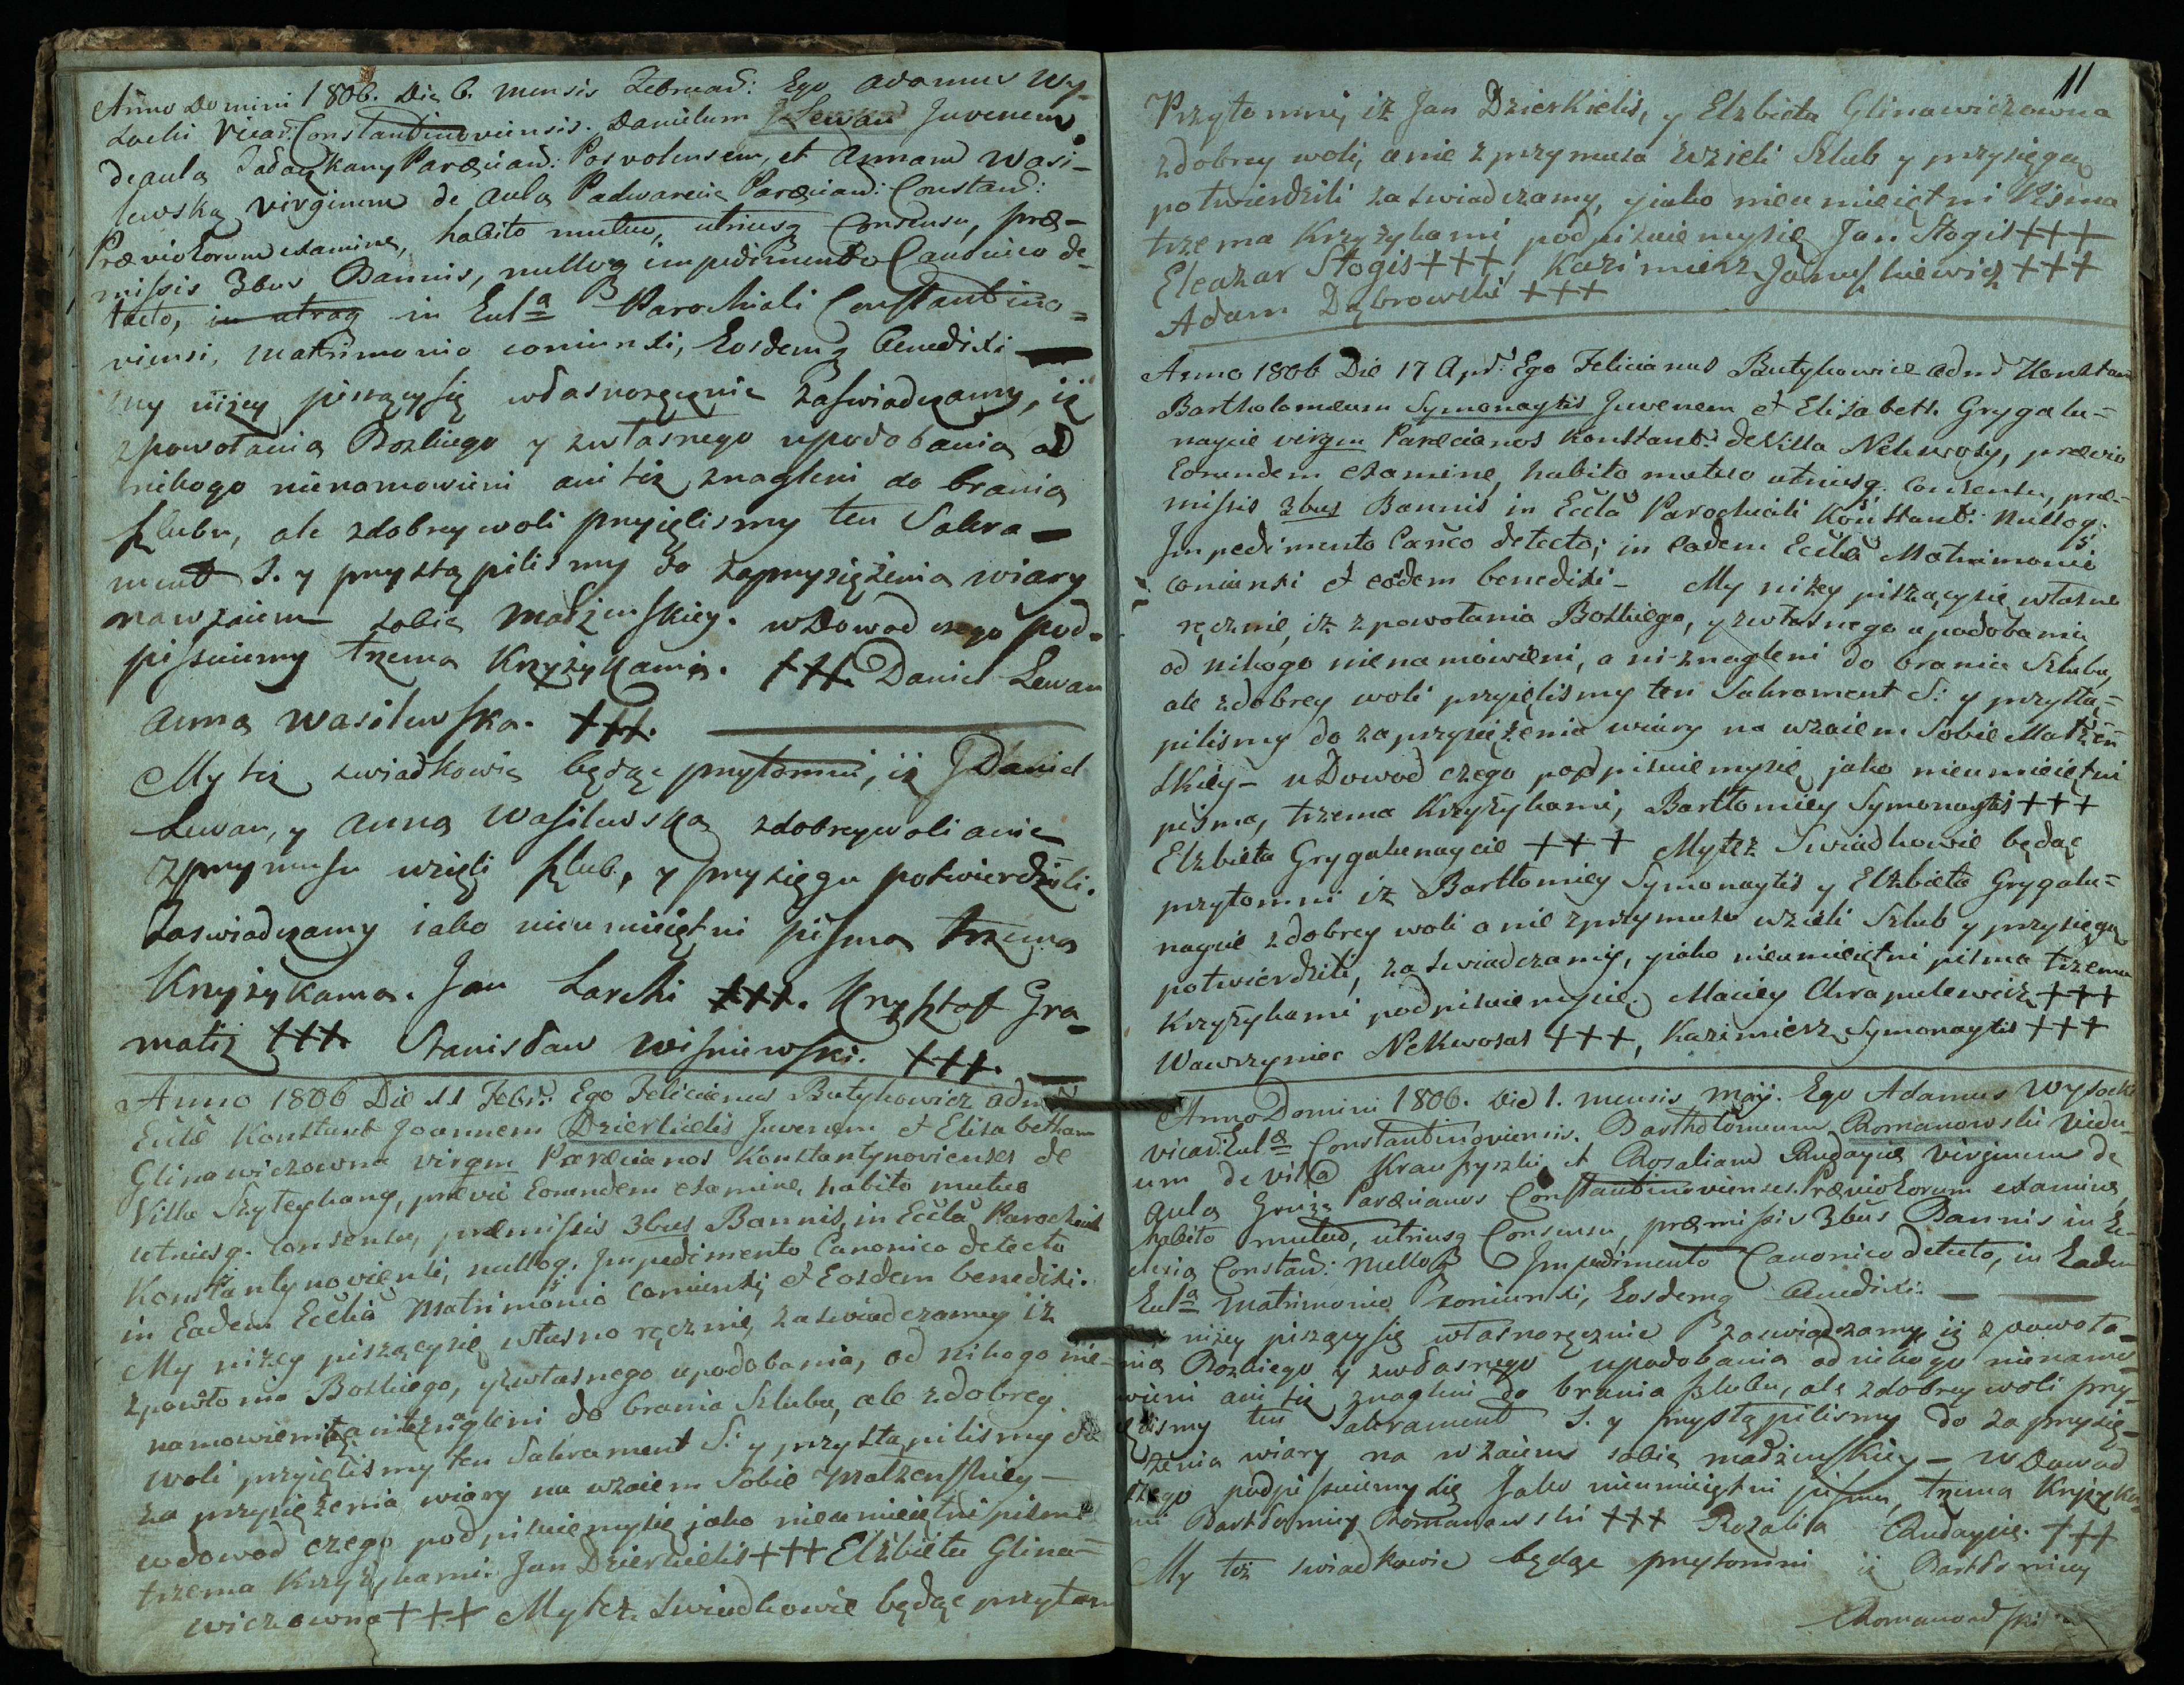 Anno Domini 1806. Die 6. mensis Februar: Ego Adamus Wy-
socki Vicar: Constantinoviensis. Danielum Lewan Juvenem
de aula Parœcian: Posvolensem, et Annam Wasi-
lewską virginem de aula Padwarenie Parœcian: Constan:
Prævio Eorum examine, habito mutuo, utriusq Consensu, præ-
missis 3bus Bannis, nulloq impedimento Canonico de-
tecto, in utraq in Eccl̲a̲ Parochiali Constantino=
viensi, matrimonio coniunxi, Eosdemq benedixi —
my niżey piszący się własnoręcznie zaswiadczamy, iż
z powołania Bozkiego y zwłasnego upodobania od
nikogo nienamowieni ani też znagleni do brania
szlubu, ale zdobrey woli przyięlismy ten Sakra-
ment S. y przystąpilismy do zaprzysiężenia wiary
nawzaiem sobie małżenskiey. w Dowod czego pod-
pissuiemy trzema Krzyżykami. +++ Daniel Lewan
Anna Wasilewska. +++.
My też swiadkowie będąc przytomni, iż Daniel
Lewan, y Anna Wasilewska zdobreywoli anie
zprzymusu wzięli szlub, y przysięgą potwierdzili.
Zaswiadczamy iako nieumieiętni pisma trzema
Krzyżykama. Jan Larcki +++. Krysztof Gra-
matis +++. Stanisław Wisniewski. +++.
Anno 1806 Die 11 Febr: Ego Felicianus Butykowicz adm
Eccle Konstant Joannem Dzierkielis Juvenem et Elisabetham
Glinawiczowna virgem Parœcianos Konstantynovienses de
Villa Szyteykany, prævio Eorundem examine, habito mutuo
utriusq. consensu, præmissis 3bus Bannis, in Eccla Parochiali
Konstantynoviensi, nulloq. Impedimento Canonico detecto
in Eadem Ecclia Matrimonio coniunxi et Eosdem benedixi.
My niżey piszącysię własno ręcznie, zaswiadczamy iż
zpowłonia Bozkiego, yzwłasnego upodobania, od nikogo nie-
namowieni ani też znagleni do brania Szlubu, ale zdobrey
woli przyięlismy ten Sakrament S: y przystąpilismy do
zaprzysiężenia wiary na wzaiem Sobie Małżenskiey —
wdowod czego podpisuiemysię jako nieumieiętni pisma
trzema Krzyżykami. Jan Dzierkielis +++ Elżbieta Glina=
wiczowna +++ Mytez Swiadkowie będąc przytom
11
Przytomni, iż Jan Dzierkielis, y Elzbieta Glinawiczowna
zdobrey woli, anie zprzymusu wzieli Szlub y przysięgą
potwierdzili zaswiadczamy, yiako nieumieiętni Pisma
trzema Krzyżykami podpisuiemysię Jan Stogis +++
Eleazar Stogis +++, Kazimierz Januszkiewicz +++
Adam Dąbrowski +++
Anno 1806 Die 17 Apr: Ego Felicianus Butykowicz adm Konstan
Bartholomæum Symonaytis Juvenem et Elizabeth. Grygalu=
naycie virgem Parœcianos Konstant: de Villa Nekwosy, prævio
Eorundem examine, habito mutuo utriusq. consensu, præ=
missis 3bus Bannis in Eccla Parochiali Konstant: Nulloq.
Impedimento Canco detecto; in eadem Ecclia Matrimonio
coniunxi et eosdem benedixi — My niżey piszącysię własno
ręcznie, iż zpowołania Bozkiego, yzwłasnego upodobania
od nikogo nienamówieni, ani-znagleni do brania Szlubu,
ale zdobrey woli przyięlismy ten Sakrament S: y przystą=
pilismy do zaprzysiężenia wiary na wzaiem Sobie Małżen=
skiey — w Dowod czego podpisuiemysię, jako nieumieiętni
pisma, trzema Krzyżykami, Bartłomiey Symonaytis +++
Elzbieta Grygalunaycie +++ Mytez Swiadkowie będąc
przytomni iż Bartłomiey Symonaytis y Elzbieta Grygalu=
naycie zdobrey woli anie zprzymusu wzieli Szlub y przysięgą
potwierdzili, zaswiadczamy, yiako nieumieiętni pisma trzema
Krzyżykami podpisuiemysię. Maciey Chrapulewicz +++
Wawrzyniec Nekwosas +++, Kazimierz Symonaytis +++
Anno Domini 1806. Die 1. mensis Maij. Ego Adamus Wysocki
vicar: Eccl̲æ̲ Constantinoviensis. Bartholomeum Romanowski Vidu-
um de villa Krauszyszki et Rozaliam Rudaycie Virginem de
aula Gruzż Parœcianos Constantinovienses. Prævio Eorum examine,
habito mutuo, utriusq Consensu, præmissis 3bus Bannis in Ec-
clesia Constan: Nulloq Impedimento Canonico detecto, in Eadem
Eccl̲a̲ matrimonio coniunxi, Eosdemq benedixi. —
niżey piszącysię własnoręcznie zaswiadczamy, iż z powoła-
nia Bozkiego y zwłasnego upodobania od nikogo nienamo-
wieni ani też znagleni do brania szlubu, ale zdobrey woli przy-
ięlismy ten Sakrament S. y przystąpilismy do zaprzysię-
żenia wiary na wzaiem sobie małżenskiey — w Dowod
czego podpissuiemy się Jako nieumieiętni pisma, trzema Krzyżyka-
mi Bartłomiey Romanowski +++ Rozalija Rudaycie. +++
My też swiadkowie będąc przytomni iż Bartłomiey
Romanowski